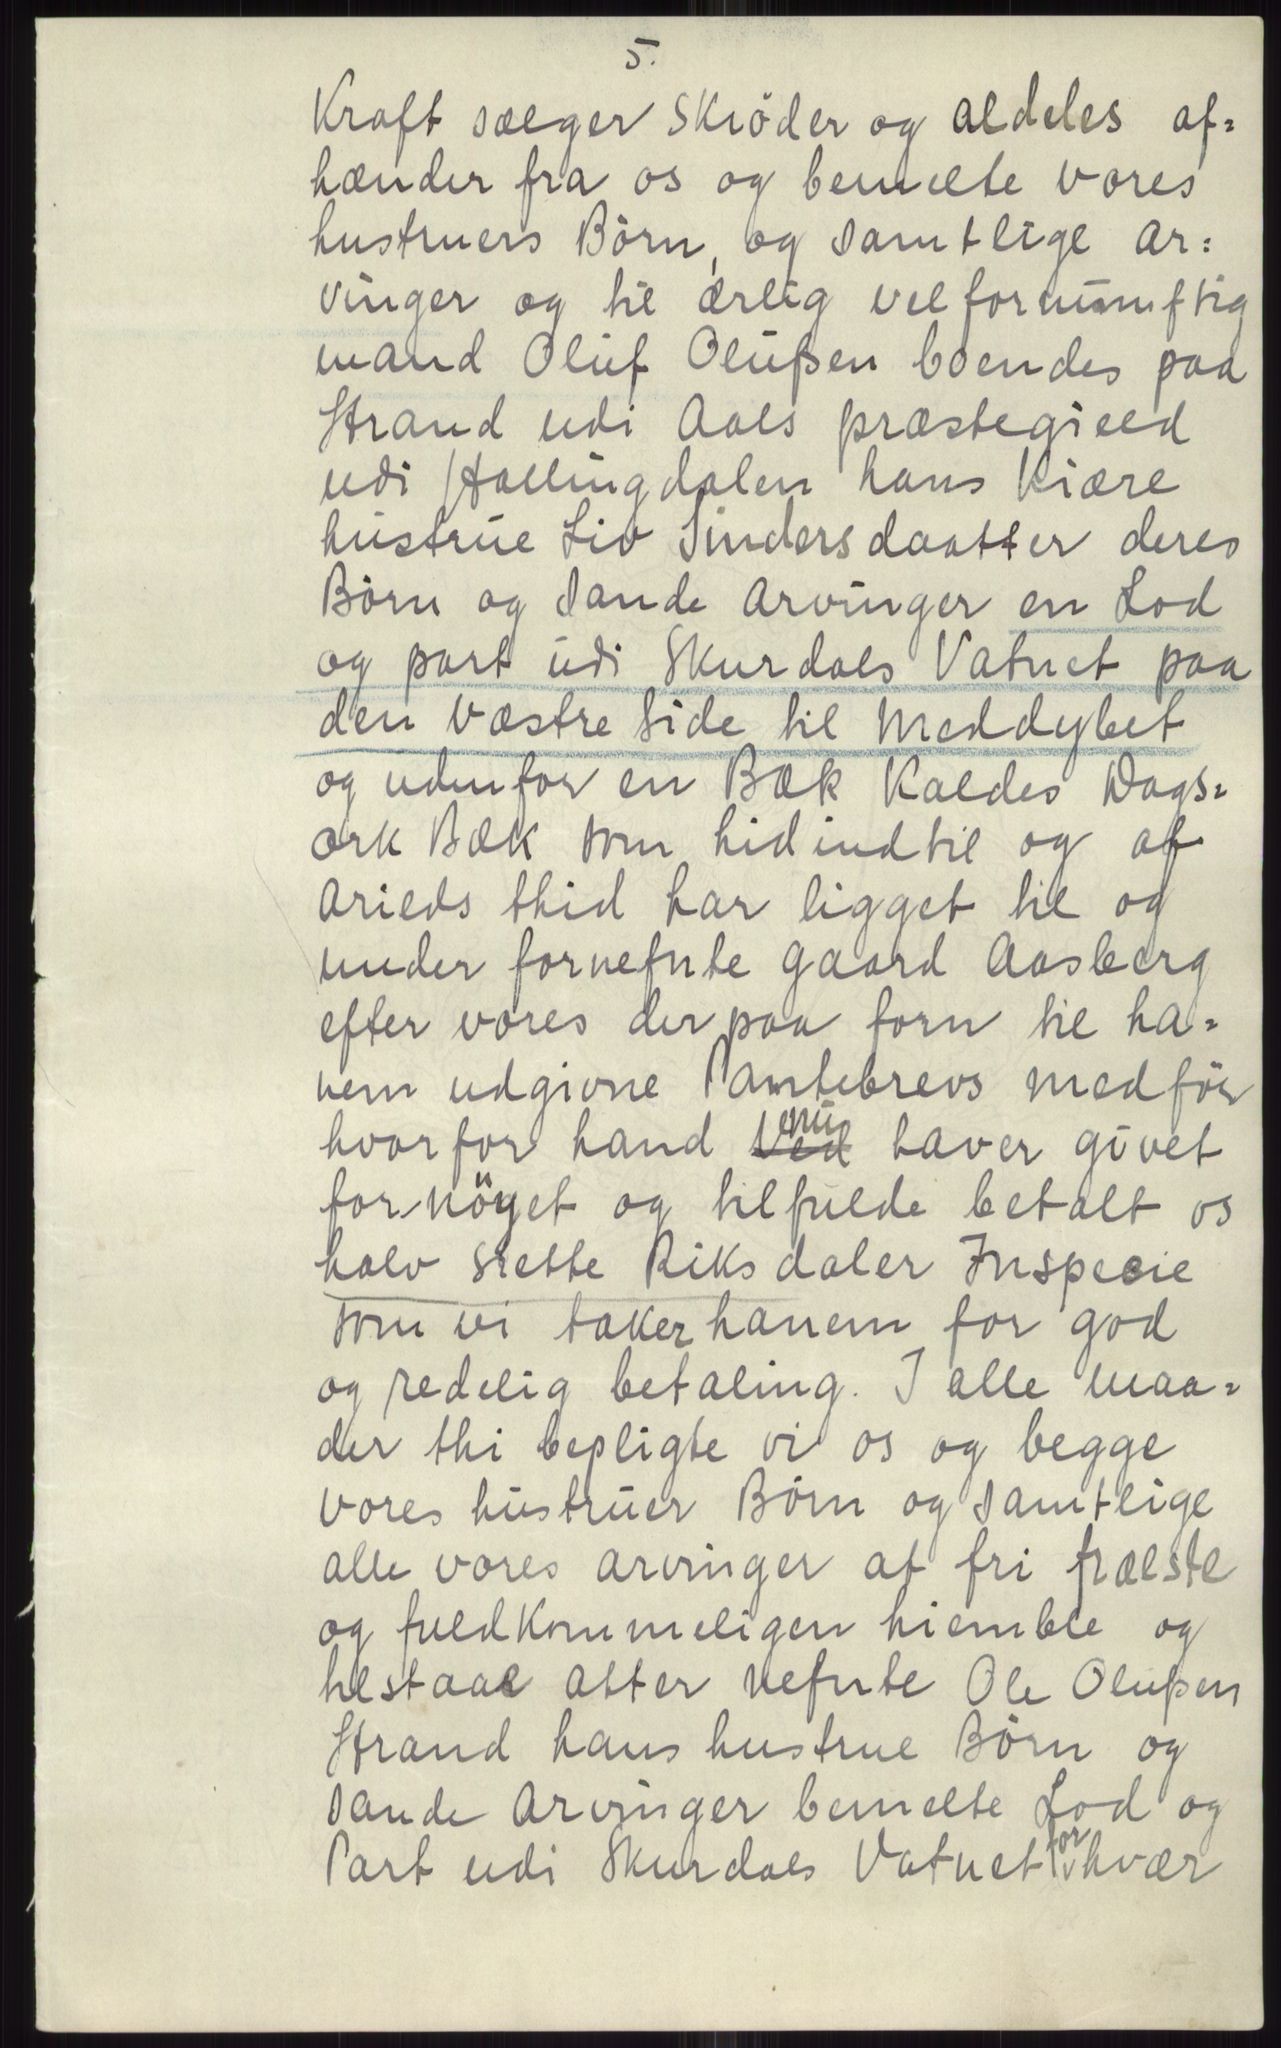 5.
Kraft sælger Skiöder og aldeles af=
hænder fra os og bemelte vores
hustruers Börn, og samtlige ar=
vinger og til ærlig velfornümftig
mand Olüf Olüßen boendes paa
Strand udi Aals præstegield
udi Hallingdalen hans Kiære
hüstrüe Liv Sindersdaatter deres
Börn og sande arvinger en Lod
og part üdi Skurdals Vatnet paa
den væstre side til Meddybet
og udenfor en Bæk Kaldes Dags=
ork Bæk som hid indtil og af
arilds thid har ligget til og
under fornefnte gaard Aasberg
efter vores der paa forn til ha=
nem udgivne Pantebrevs medför
hvorfor hand Ved enü haver givet
fornöyet og tilfulde betalt os
halv siette Riksdaler Inspecie
som vi takker hanem for god
og redelig betaling. I alle maa=
der thi bepligte vi os og begge
vores hüstrüer Börn og samtlige
alle vores arvinger at fri frælste
og fuldkommeligen hiemble og
tilstaae atter nefnte Ole Olüßen
Strand hans hustrue Börn og
sande arvinger bemelte Lod og
Part udi Skurdals Vatnet for hvær